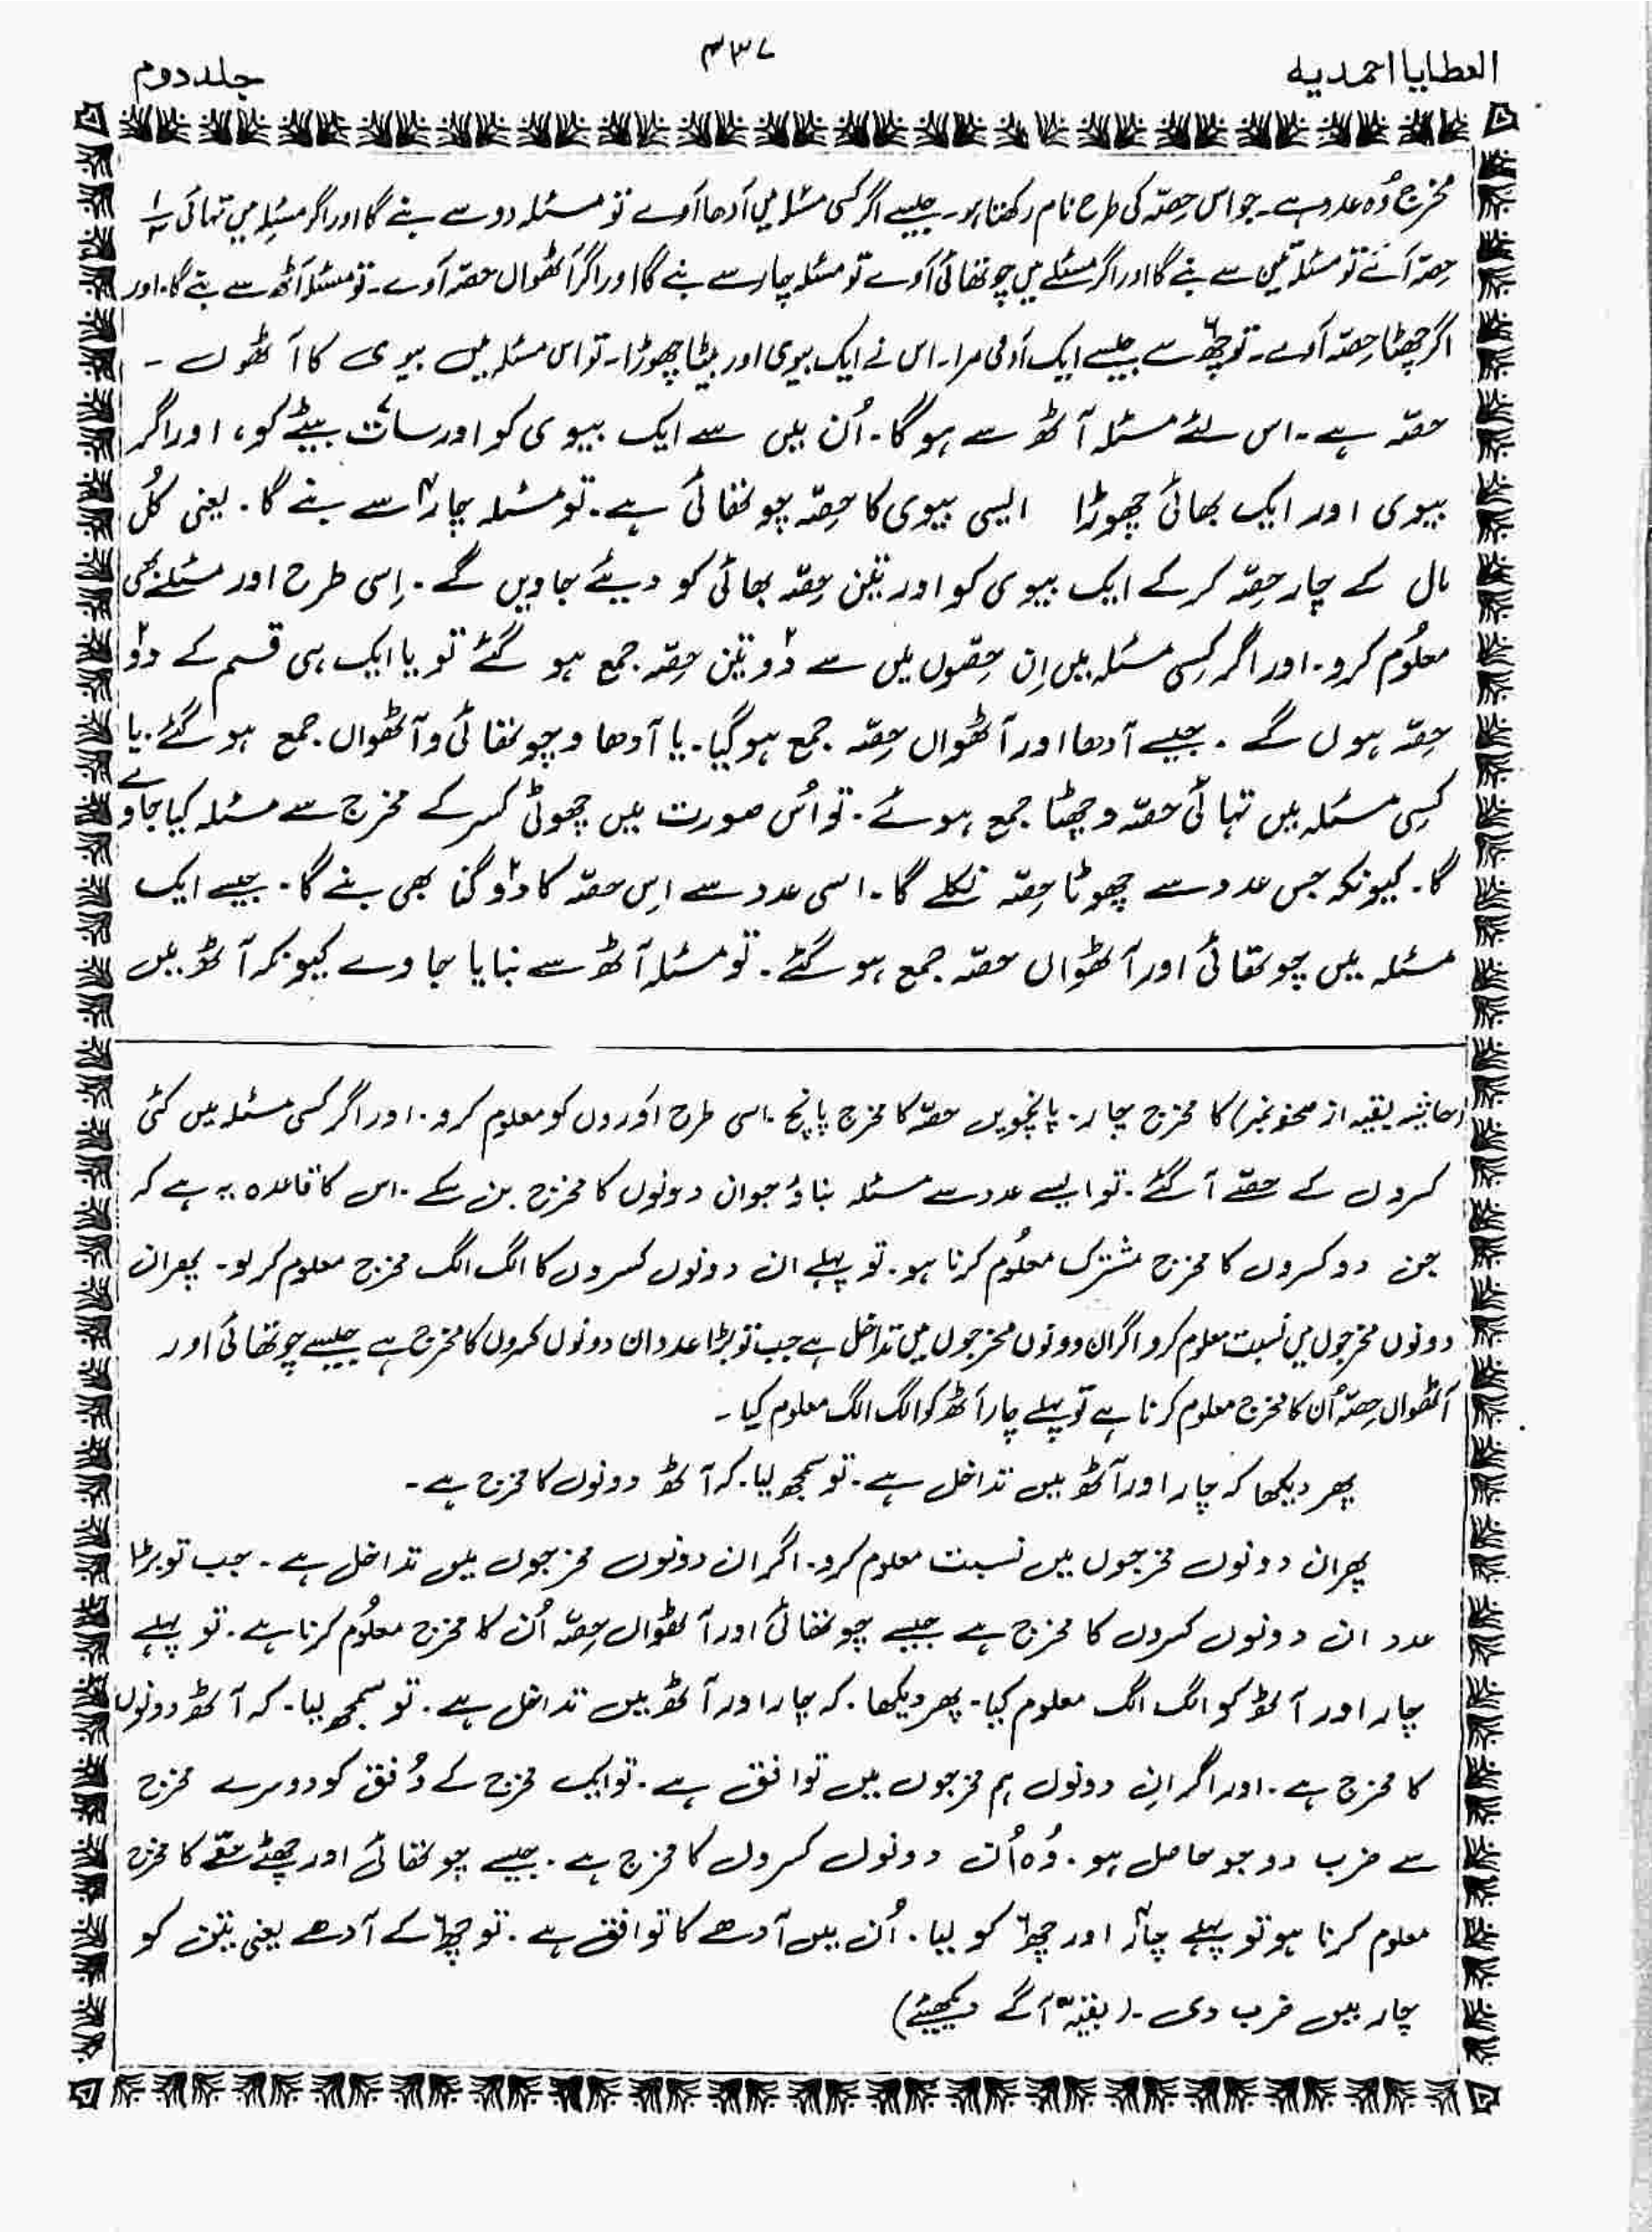 العطایا احمدیہ
۳۳۷
جلد دوم
مخرج وُہ عدد ہے۔ جو اس حِصّہ کی طرح نام رکھتا ہو۔ جیسے اگر کسی مسئلہ میں آدھا آوے تو مسئلہ دو سے بنے گا اور اگر مسئلہ میں تہائی ۱/۳
حِصّہ آئے تو مسئلہ تین سے بنے گا اور اگر مسئلے میں چوتھائی آوے تو مسئلہ چار سے بنے گا اور اگر آٹھواں حصّہ آوے۔ تو مسئلہ آٹھ سے بنے گا۔ اور
اگر چھٹا حِصّہ آوے۔ تو چھ۶ سے جیسے ایک آدمی مرا۔ اس نے ایک بیوی اور بیٹا چھوڑا۔ تو اس مسئلہ میں بیوی کا آٹھوں ۔
حصّہ ہے۔ اس لئے مسئلہ آٹھ سے ہو گا۔ اُن میں سے ایک بیوی کو اور سات۷ بیٹے کو، اور اگر
بیوی اور ایک بھائی چھوڑا ایسی بیوی کا حِصّہ چوتھائی ہے۔ تو مسئلہ چار۴ سے بنے گا۔ یعنی کُل
مال کے چار حِصّہ کر کے ایک بیوی کو اور تین حِصّہ بھائی کو دیئے جاویں گے۔ اِسی طرح اور مسئلے بھی
معلُوم کرو۔ اور اگر کِسی مسئلہ میں اِن حِصّوں میں سے دو۲ تین حِصّہ جمع ہو گئے تو یا ایک ہی قسم کے دو۲
حِصّہ ہوں گے ۔ جیسے آدھا اور آٹھواں حِصّہ جمع ہو گیا۔ یا آدھا و چوتھائی و آٹھواں جمع ہو گئے۔ یا
کِسی مسئلہ میں تہائی حصّہ و چھٹا جمع ہوئے۔ تو اُس صورت میں چھوٹی کسر کے مخرج سے مسئلہ کیا جاوے
گا۔ کیونکہ جس عدد سے چھوٹا حِصّہ نکلے گا۔ اسی عدد سے اِس حصّہ کا دو۲ گنا بھی بنے گا۔ جیسے ایک
مسئلہ میں چوتھائی اور آٹھواں حصّہ جمع ہو گئے۔ تو مسئلہ آٹھ سے بنایا جاوے کیونکہ آٹھ میں
(حاشیہ بقیہ از صحفہ نمبر) کا مخرج چار۔ پانچویں حصّہ کا مخرج پانچ۔ اسی طرح اَوروں کو معلوم کرو۔ اور اگر کسی مسئلہ میں کئی
کسروں کے حصّے آ گئے۔ تو ایسے عدد سے مسئلہ بناؤ جو ان دونوں کا مخرج بن سکے ۔ اس کا قاعدہ یہ ہے کہ
جن دو کسروں کا مخرج مشترک معلُوم کرنا ہو۔ تو پہلے ان دونوں کسروں کا الگ الگ مخرج معلوم کر لو۔ پھر ان
دونوں مخرجوں میں نسبت معلوم کرو اگر ان دونوں مخرجوں میں تداخل ہے جب تو بڑا عدد ان دونوں کسروں کا مخرج ہے جیسے چوتھائی اور
آٹھواں حِصّہ اُن کا مخرج معلوم کرنا ہے تو پہلے چار آٹھ کو الگ الگ معلوم کیا ۔
پھر دیکھا کہ چار اور آٹھ میں تداخل ہے۔ تو سمجھ لیا۔ کہ آٹھ دونوں کا مخرج ہے۔
پھر ان دونوں مخرجوں میں نسبت معلوم کرو۔ اگر ان دونوں مخرجوں میں تداخل ہے ۔ جب تو بڑا
عدد ان دونوں کسروں کا مخرج ہے جیسے چوتھائی اور آٹھواں حِصّہ اُن کا مخرج معلُوم کرنا ہے۔ تو پہلے
چار اور آٹھ کو الگ الگ معلوم کیا۔ پھر دیکھا۔ کہ چار اور آٹھ میں تداخل ہے۔ تو سمجھ لیا۔ کہ آٹھ دونوں
کا مخرج ہے۔ اور اگر اِن دونوں ہم مخرجوں میں توافق ہے۔ تو ایک مخرج کے وُفق کو دوسرے مخرج
سے ضرب دو جو حاصل ہو۔ وُہ اُن دونوں کسروں کا مخرج ہے۔ جیسے چوتھائی اور چھٹے حصّے کا مخرج
معلوم کرنا ہو تو پہلے چار۴ اور چھ۶ کو لیا۔ اُن میں آدھے کا توافق ہے۔ تو چھ۶ کے آدھے یعنی تین کو
چار میں ضرب دی ۔ (بقیّہ آگے دیکھیئے)